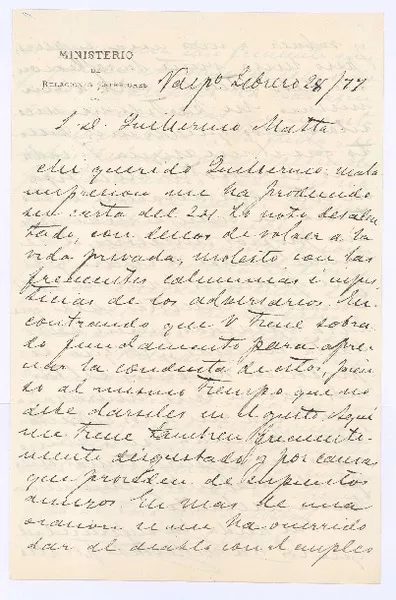 MINISTERIO
DE
RELACIONES EXTERIORES
Valpo. Febrero 28/77
S. D. Guillermo Matta.
Mi querido Guillermo: mala
impresion me ha producido
su carta del 24. Lo noto desalen
tado, con deseos de volver a la
vida privada, molesto con las
frecuentes calumnias é injus
ticias de los adversarios. En
contrando que V tiene sobra
do fundamento para apre
ciar la conducta de éstos, pien
so al mismo tiempo que no
debe darseles en el gusto. Aquí
me tiene tambien frecuente
mente disgustado y por causas
que proceden de supuestos
amigos. En mas de una
ocasion se me ha ocurrido
dar al diablo con el empleo